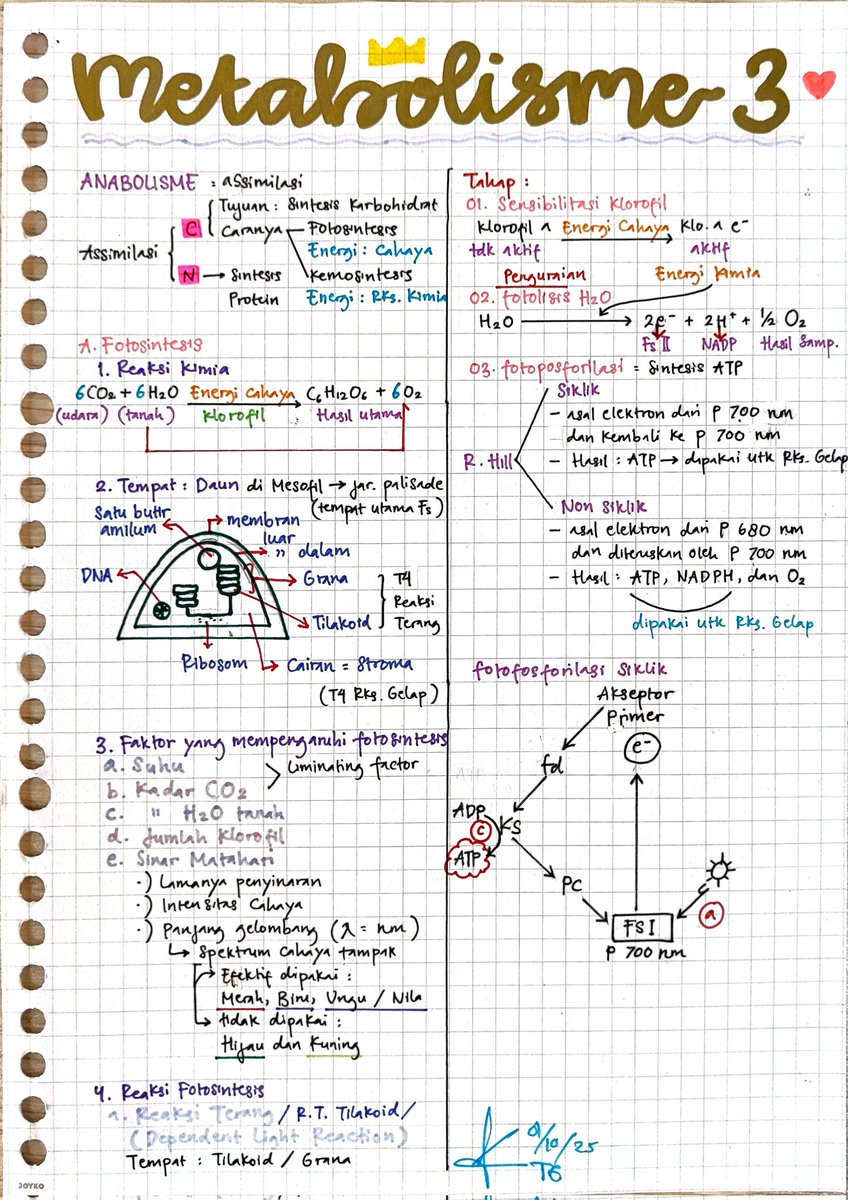 Metabolisme 3
ANABOLISME : assimilasi
Assimilasi
C
Tujuan : Sintesis Karbohidrat
Caranya
Fotosintesis
Energi : Cahaya
Kemosintesis
Energi : Rks. Kimia
N → Sintesis
Protein
A. Fotosintesis
1. Reaksi Kimia
6CO₂ + 6H₂O Energi Cahaya → C₆H₁₂O₆ + 6O₂
(udara) (tanah) Klorofil Hasil utama
2. Tempat : Daun di Mesofil → jar. palisade
(tempat utama Fs)
Satu butir
amilum
membran
luar
" dalam
DNA
Grana
Tilakoid
T4
Reaksi
Terang
Ribosom
Cairan = Stroma
(T4 Rks. Gelap)
3. Faktor yang mempengaruhi fotosintesis
a. Suhu
b. Kadar CO₂
Liminating factor
c. " H₂O tanah
d. Jumlah Klorofil
e. Sinar Matahari
·) Lamanya penyinaran
·) Intensitas Cahaya
·) Panjang gelombang (λ = nm)
↳ Spektrum cahaya tampak
→ Efektif dipakai :
Merah, Biru, Ungu / Nila
→ tidak dipakai :
Hijau dan Kuning
4. Reaksi Fotosintesis
a. Reaksi Terang / R.T. Tilakoid /
(Dependent Light Reaction)
Tempat : Tilakoid / Grana
JOYKO
Tahap :
01. Sensibilitasi Klorofil
Klorofil a Energi Cahaya → Klo. a e⁻
tdk aktif aktif
Penguraian Energi Kimia
02. fotolisis H₂O
H₂O → 2e⁻ + 2H⁺ + ½ O₂
Fs II NADP Hasil Samp.
03. fotoposforilasi = Sintesis ATP
R. Hill
Siklik
- asal elektron dari P 700 nm
dan kembali ke P 700 nm
- Hasil : ATP → dipakai utk Rks. Gelap
Non Siklik
- asal elektron dari P 680 nm
dan diteruskan oleh P 700 nm
- Hasil : ATP, NADPH, dan O₂
dipakai utk Rks. Gelap
fotofosforilasi Siklik
Akseptor
Primer
e⁻
fd
ADP
C
KS
ATP
PC
FS I
a
P 700 nm
01/10/25
T6